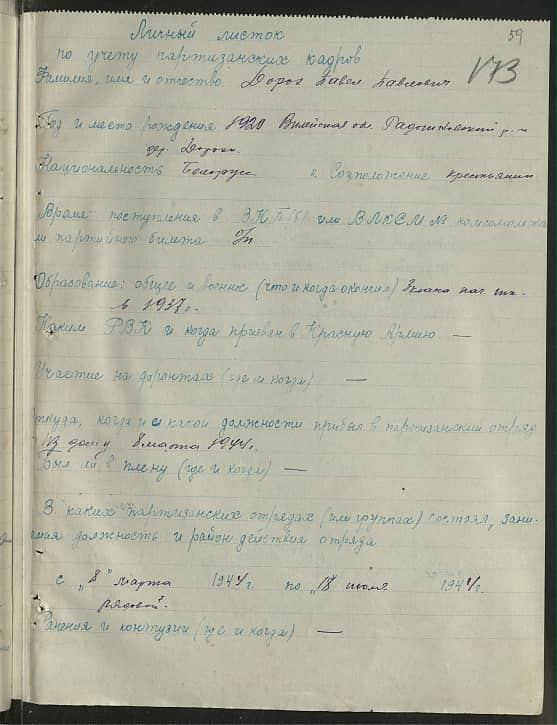 59
Личный листок
по учету партизанских кадров
V73
Фамилия, имя и отчество Дорох Павел Павлович
Год и место рождения 1920 Вилейская обл. Радошковский р-н
дер. Дорохи
Национальность Белорус и Соцположение крестьянин
Время поступления в ВКП(б) или ВЛКСМ № комсомольск
и партийного билета б/п
Образование: общее и военное (что и когда окончил) 3 класса нач. шк.
в 1937 г.
Каким РВК и когда призван в Красную Армию —
Участие на фронтах (где и когда) —
Откуда, когда и с какой должности прибыл в партизанский отряд
Из дому 8 марта 1944 г.
Был ли в плену (где и когда) —
В каких партизанских отрядах (или группах) состоял, зани-
емая должность и район действия отряда
с „8" марта 1944 г. по „18 июля 1944 г.
рядовой.
Ранения и контузии (где и когда) —